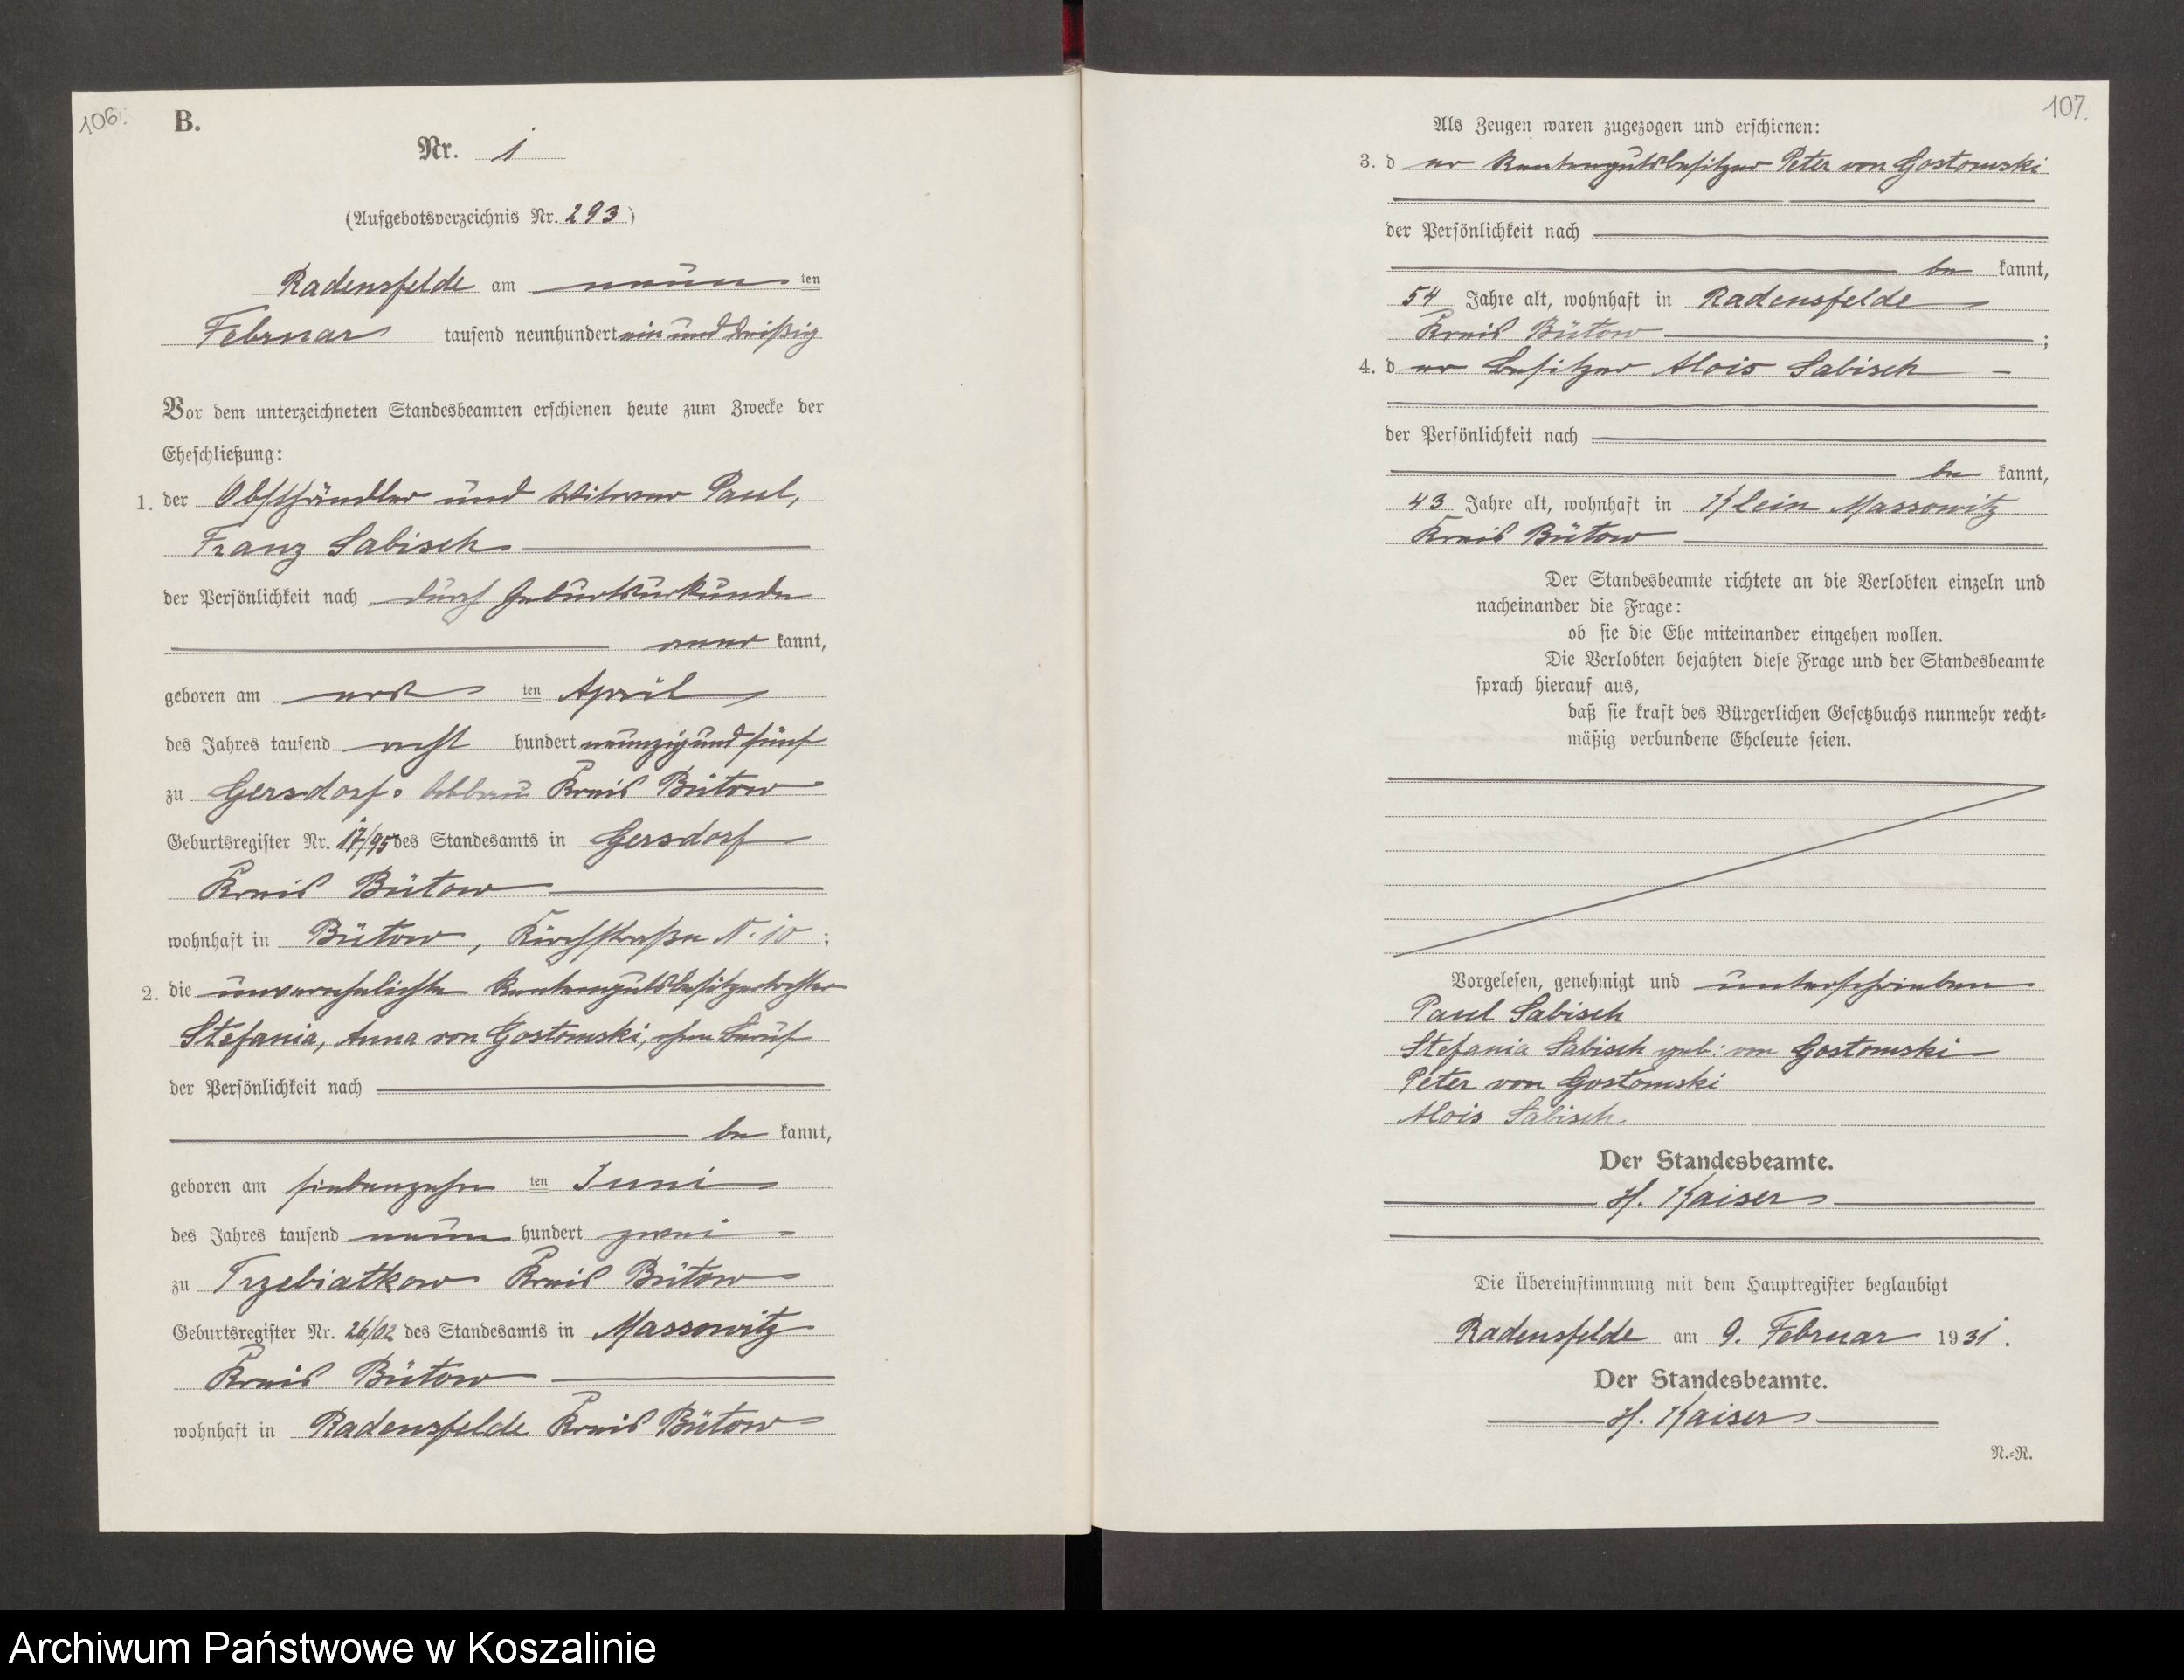 106.
B.
Nr. 1
(Aufgebotsverzeichnis Nr. 293)
Radensfelde am neunten
Februar tausend neunhundert ein und dreißig
Vor dem unterzeichneten Standesbeamten erschienen heute zum Zwecke der
Eheschließung:
1. der Obsthändler und Witwer Paul,
Franz Sabisch
der Persönlichkeit nach durch Geburtsurkunde
anerkannt,
geboren am ersten April
des Jahres tausend acht hundert neunzig und fünf
zu Gersdorf-Abbau Kreis Bütow
Geburtsregister Nr. 17/95 des Standesamts in Gersdorf
Kreis Bütow
wohnhaft in Bütow, Kirchstraße N. 10;
2. die unverehelichte Rentengutsbesitzertochter
Stefania, Anna von Gostomski, ohne Beruf
der Persönlichkeit nach
bekannt,
geboren am siebenzehnten Juni
des Jahres tausend neun hundert zwei
zu Trzebiatkow Kreis Bütow
Geburtsregister Nr. 26/02 des Standesamts in Massowitz
Kreis Bütow
wohnhaft in Radensfelde Kreis Bütow
107.
Als Zeugen waren zugezogen und erschienen:
3. der Rentengutsbesitzer Peter von Gostomski
der Persönlichkeit nach
bekannt,
54 Jahre alt, wohnhaft in Radensfelde
Kreis Bütow;
4. der Besitzer Alois Sabisch
der Persönlichkeit nach
bekannt,
43 Jahre alt, wohnhaft in Klein Massowitz
Kreis Bütow
Der Standesbeamte richtete an die Verlobten einzeln und
nacheinander die Frage:
ob sie die Ehe miteinander eingehen wollen.
Die Verlobten bejahten diese Frage und der Standesbeamte
sprach hierauf aus,
daß sie kraft des Bürgerlichen Gesetzbuchs nunmehr recht-
mäßig verbundene Eheleute seien.
Vorgelesen, genehmigt und unterschrieben
Paul Sabisch
Stefania Sabisch geb: von Gostomski
Peter von Gostomski
Alois Sabisch
Der Standesbeamte.
H. Kaiser
Die Übereinstimmung mit dem Hauptregister beglaubigt
Radensfelde am 9. Februar 1931.
Der Standesbeamte.
H. Kaiser
N.-R.
Archiwum Państwowe w Koszalinie